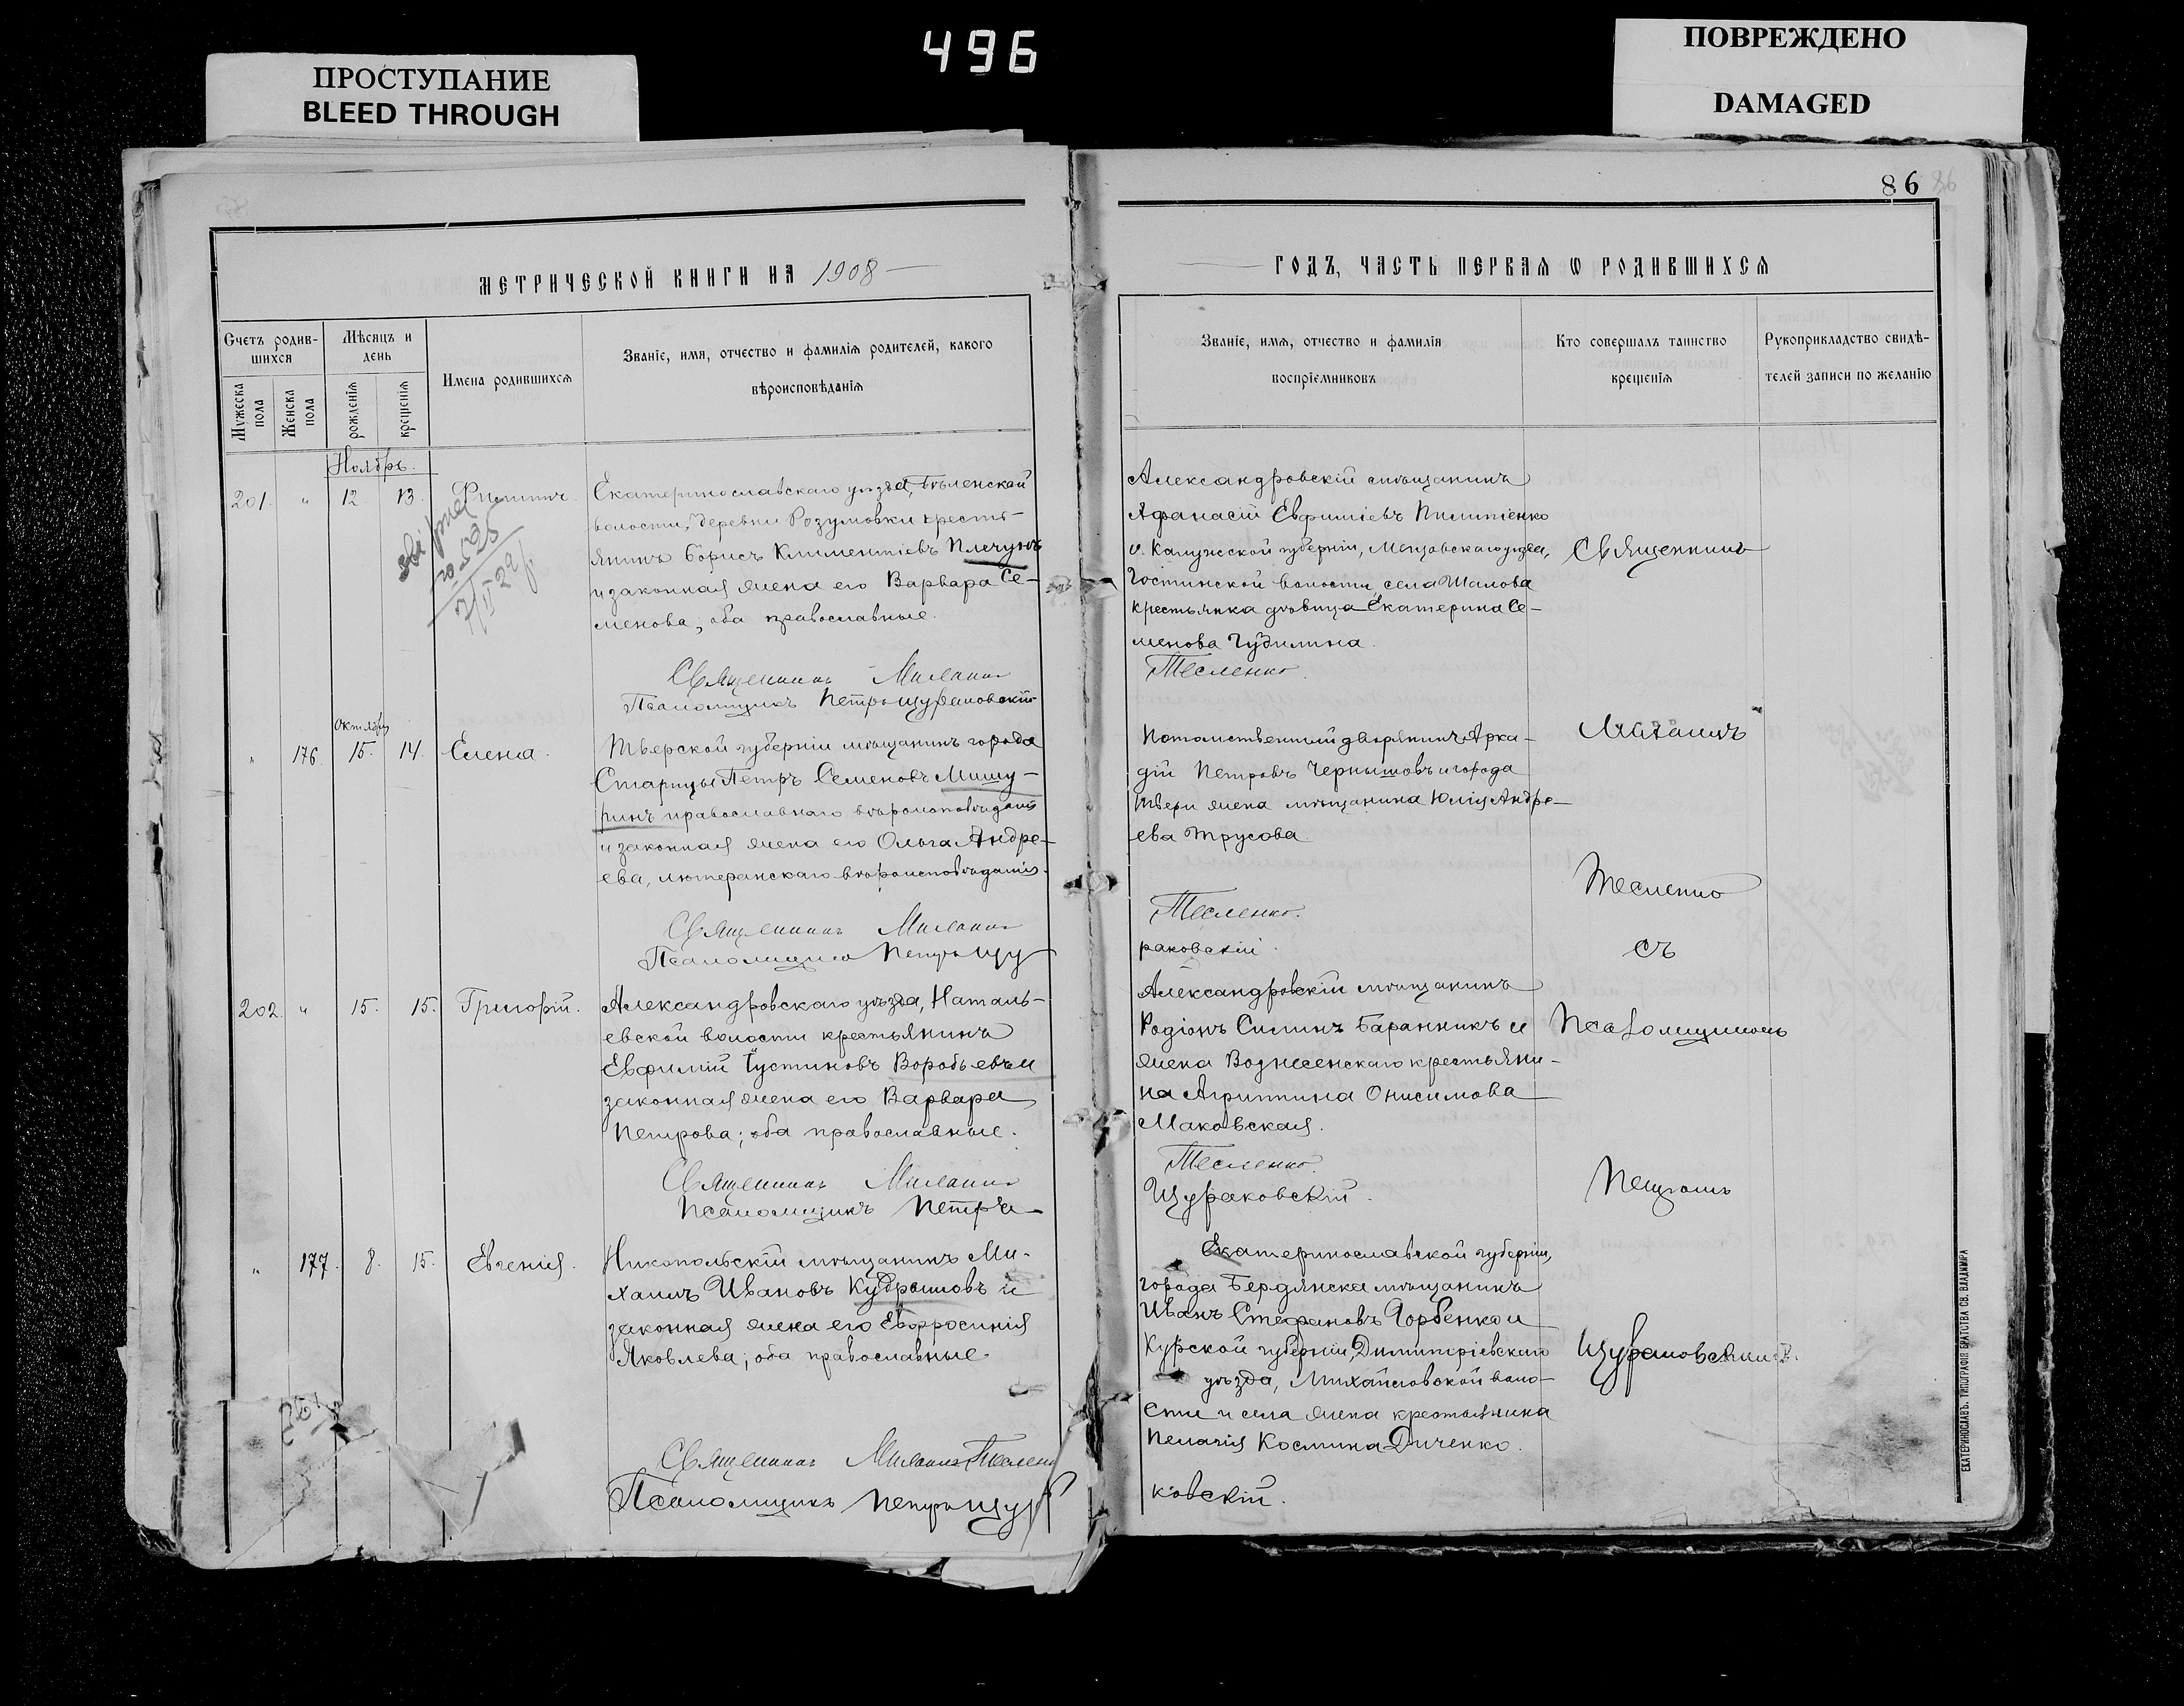 496
ПРОСТУПАНИЕ
BLEED THROUGH
ПОВРЕЖДЕНО
DAMAGED
86
МЕТРИЧЕСКОЙ КНИГИ НА 1908
Счетъ родив-
шихся
Мѣсяцъ и
день
Имена родившихся
Званіе, имя, отчество и фамилія родителей, какого
вѣроисповѣданія
Мужеска
пола
Женска
пола
рожденія
крещенія
Ноябрь.
201. " 12. 13. Филиппъ.
Екатеринославскаго уѣзда, Бѣленской
волости, деревни Розумовки кресть-
янинъ Борисъ Климентіевъ Плечунъ
и законная жена его Варвара Се-
менова; оба православные.
Священникъ
Псаломщикъ Петръ Щураковскій
Октября
" 176. 15. 14. Елена.
Тверской губерніи мѣщанинъ города
Старицы Петръ Семеновъ Мишу-
ринъ православнаго вѣроисповѣданія
и законная жена его Ольга Андре-
ева, лютеранскаго вѣроисповѣданія.
Священникъ
Псаломщикъ Петръ Щу
202. " 15. 15. Григорій.
Александровскаго уѣзда, Наталь-
евской волости крестьянинъ
Евфимій Іустиновъ Воробьевъ и
законная жена его Варвара
Петрова; оба православные.
Священникъ
Псаломщикъ Петръ
" 177. 8. 15. Евгенія.
Никопольскій мѣщанинъ Ми-
хаилъ Ивановъ Кудрашовъ и
законная жена его Евфросинія
Яковлева; оба православные.
Священникъ
Псаломщикъ Петръ Щур
ГОДЪ, ЧАСТЬ ПЕРВАЯ Ѡ РОДИВШИХСЯ
Званіе, имя, отчество и фамилія
воспріемниковъ
Кто совершалъ таинство
крещенія
Рукоприкладство свидѣ-
телей записи по желанію
Александровскій мѣщанинъ
Афанасій Евфиміевъ Пилипенко
и Калужской губерніи, Мещовскаго уѣзда,
волости, села Шалова
крестьянка дѣвица Екатерина Се-
менова Чудилина.
Тесленко.
Потомственный дворянинъ Арка-
дій Петровъ Чернышовъ и города
Твери жена мѣщанина Юлія Андре-
ева Трусова.
Тесленко.
раковскій.
Александровскій мѣщанинъ
Родіонъ Силинъ Баранникъ и
жена Вознесенскаго крестьяни-
на Агриппина Онисимова
Маковская.
Тесленко.
Щураковскій.
Екатеринославской губерніи,
города Бердянска мѣщанинъ
Иванъ Стефановъ Горбенко и
Курской губерніи, Димитріевскаго
уѣзда, Михайловской воло-
сти и села жена крестьянина
Пелагія Космина Дьяченко.
ковскій.
Священникъ
Тесленко
съ
Псаломщикомъ
Петромъ
Щураковскимъ.
ЕКАТЕРИНОСЛАВЪ. ТИПОГРАФІЯ БРАТСТВА СВ. ВЛАДИМІРА